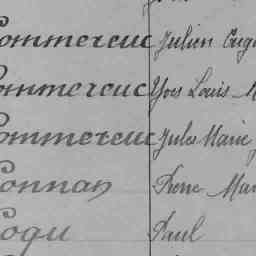 Commereuc Julien Eug
Commereuc Yves Louis M
Commereuc Jules Marie
Connan Pierre Mar
Coqu Paul